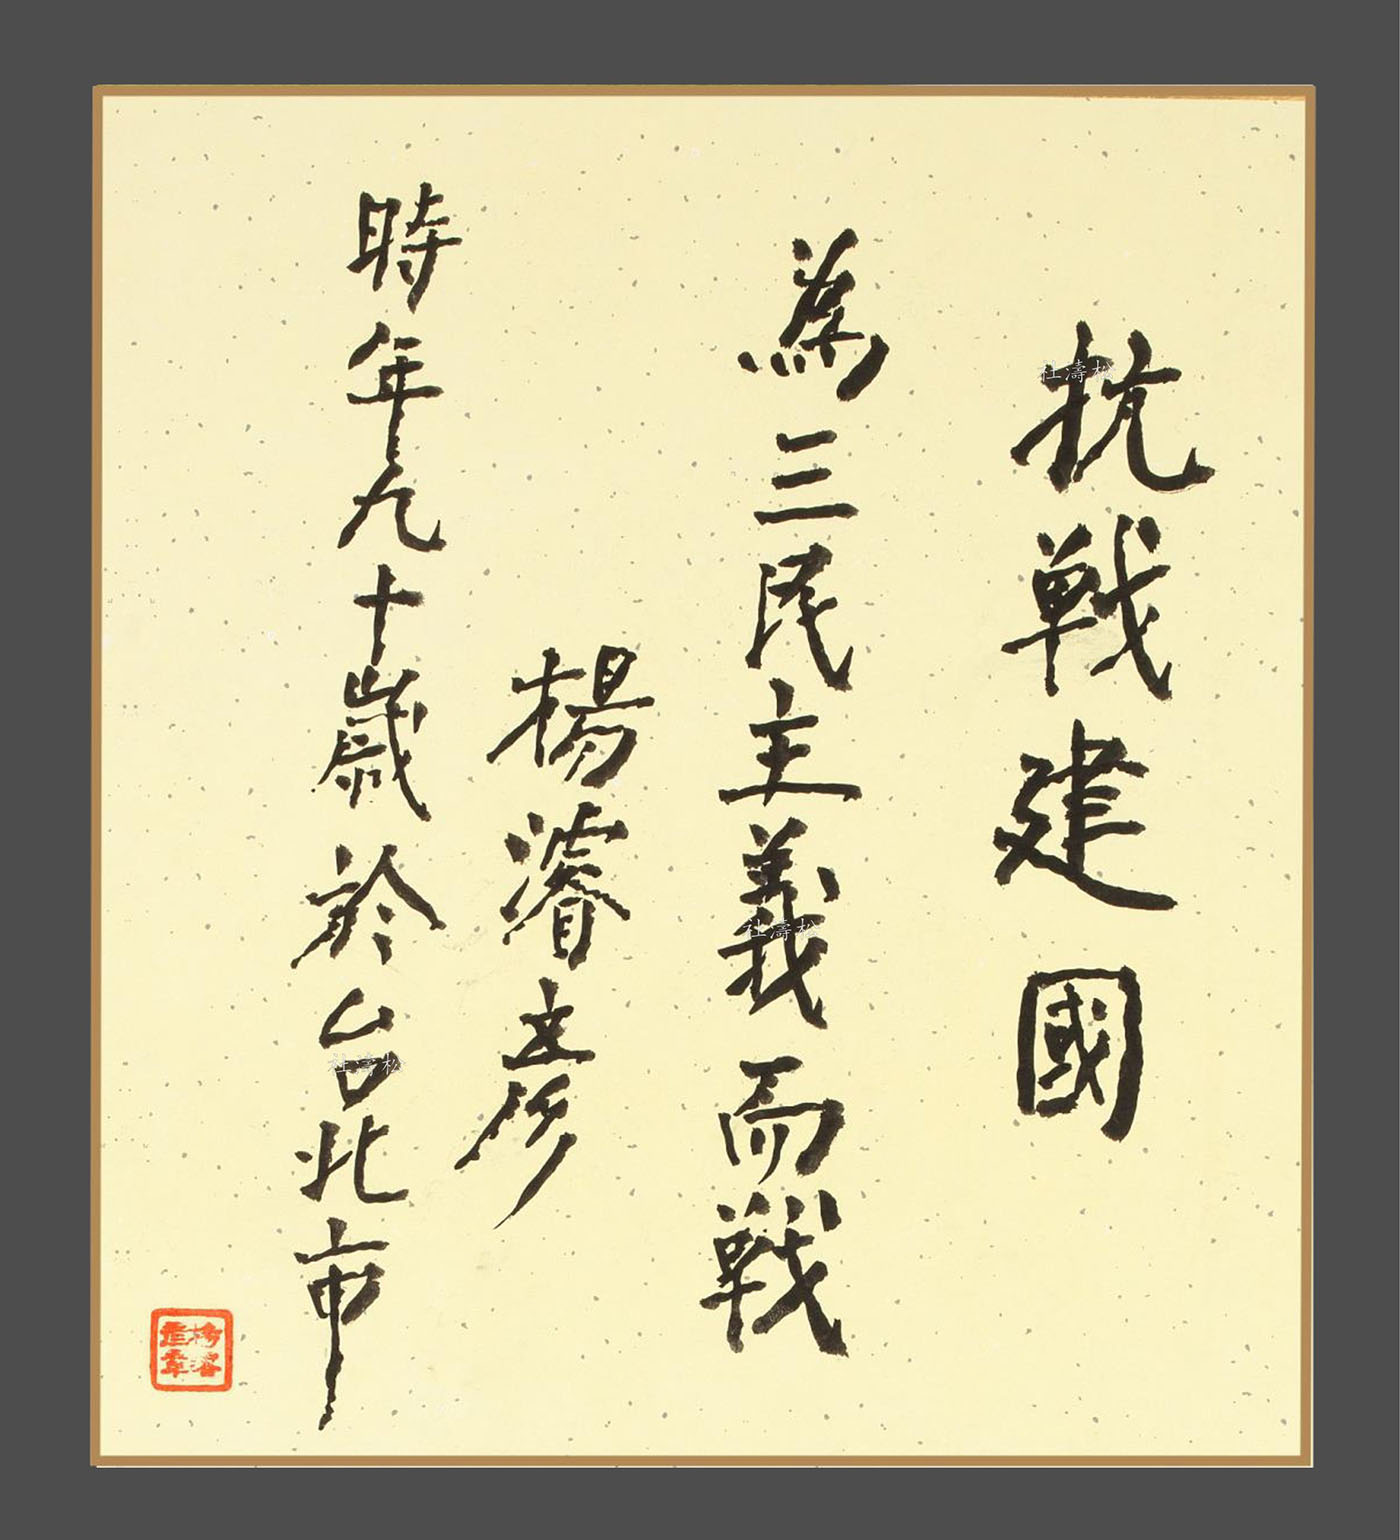 抗戦建國
為三民主義而戦
楊濬彥
時年九十歲於台北市
楊濬彥章
杜濤松
杜濤松
杜濤松